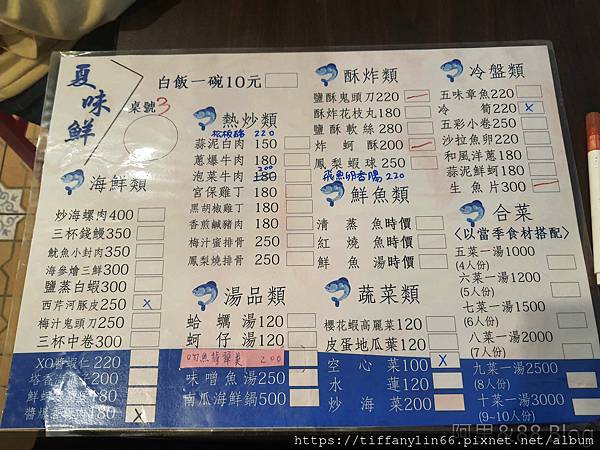 夏味鮮
桌號 3
白飯一碗10元
海鮮類
炒海螺肉400
三杯錢鰻350
魷魚小封肉350
海參燴三鮮300
鹽蒸白蝦300
西芹河豚皮250 x
梅汁鬼頭刀250
三杯中卷300
XO醬蝦仁220
180 x
熱炒類
松板豬 220
蒜泥白肉150
蔥爆牛肉180
泡菜牛肉180
宮保雞丁180
黑胡椒雞丁180
香煎鹹豬肉180
梅汁蜜排骨250
鳳梨燒排骨250
湯品類
蛤蠣湯120
蚵仔湯120
200
味噌魚湯250
南瓜海鮮鍋500
酥炸類
鹽酥鬼頭刀220
酥炸花枝丸180
鹽酥軟絲280
炸蚵酥200
鳳梨蝦球250
飛魚卵香腸 220
鮮魚類
清蒸魚時價
紅燒魚時價
鮮魚湯時價
蔬菜類
櫻花蝦高麗菜120
皮蛋地瓜葉120
空心菜100 x
水蓮120
炒海菜200
冷盤類
五味章魚220
冷筍220 x
五彩小卷250
沙拉魚卵220
和風洋蔥180
蒜泥鮮蚵180
生魚片300
合菜
<以當季食材搭配>
五菜一湯1000
(4人份)
六菜一湯1200
(5人份)
七菜一湯1500
(6人份)
八菜一湯2000
(7人份)
九菜一湯2500
(8人份)
十菜一湯3000
(9~10人份)
阿里&88 Blog
https://tiffanylin66.pixnet.net/album